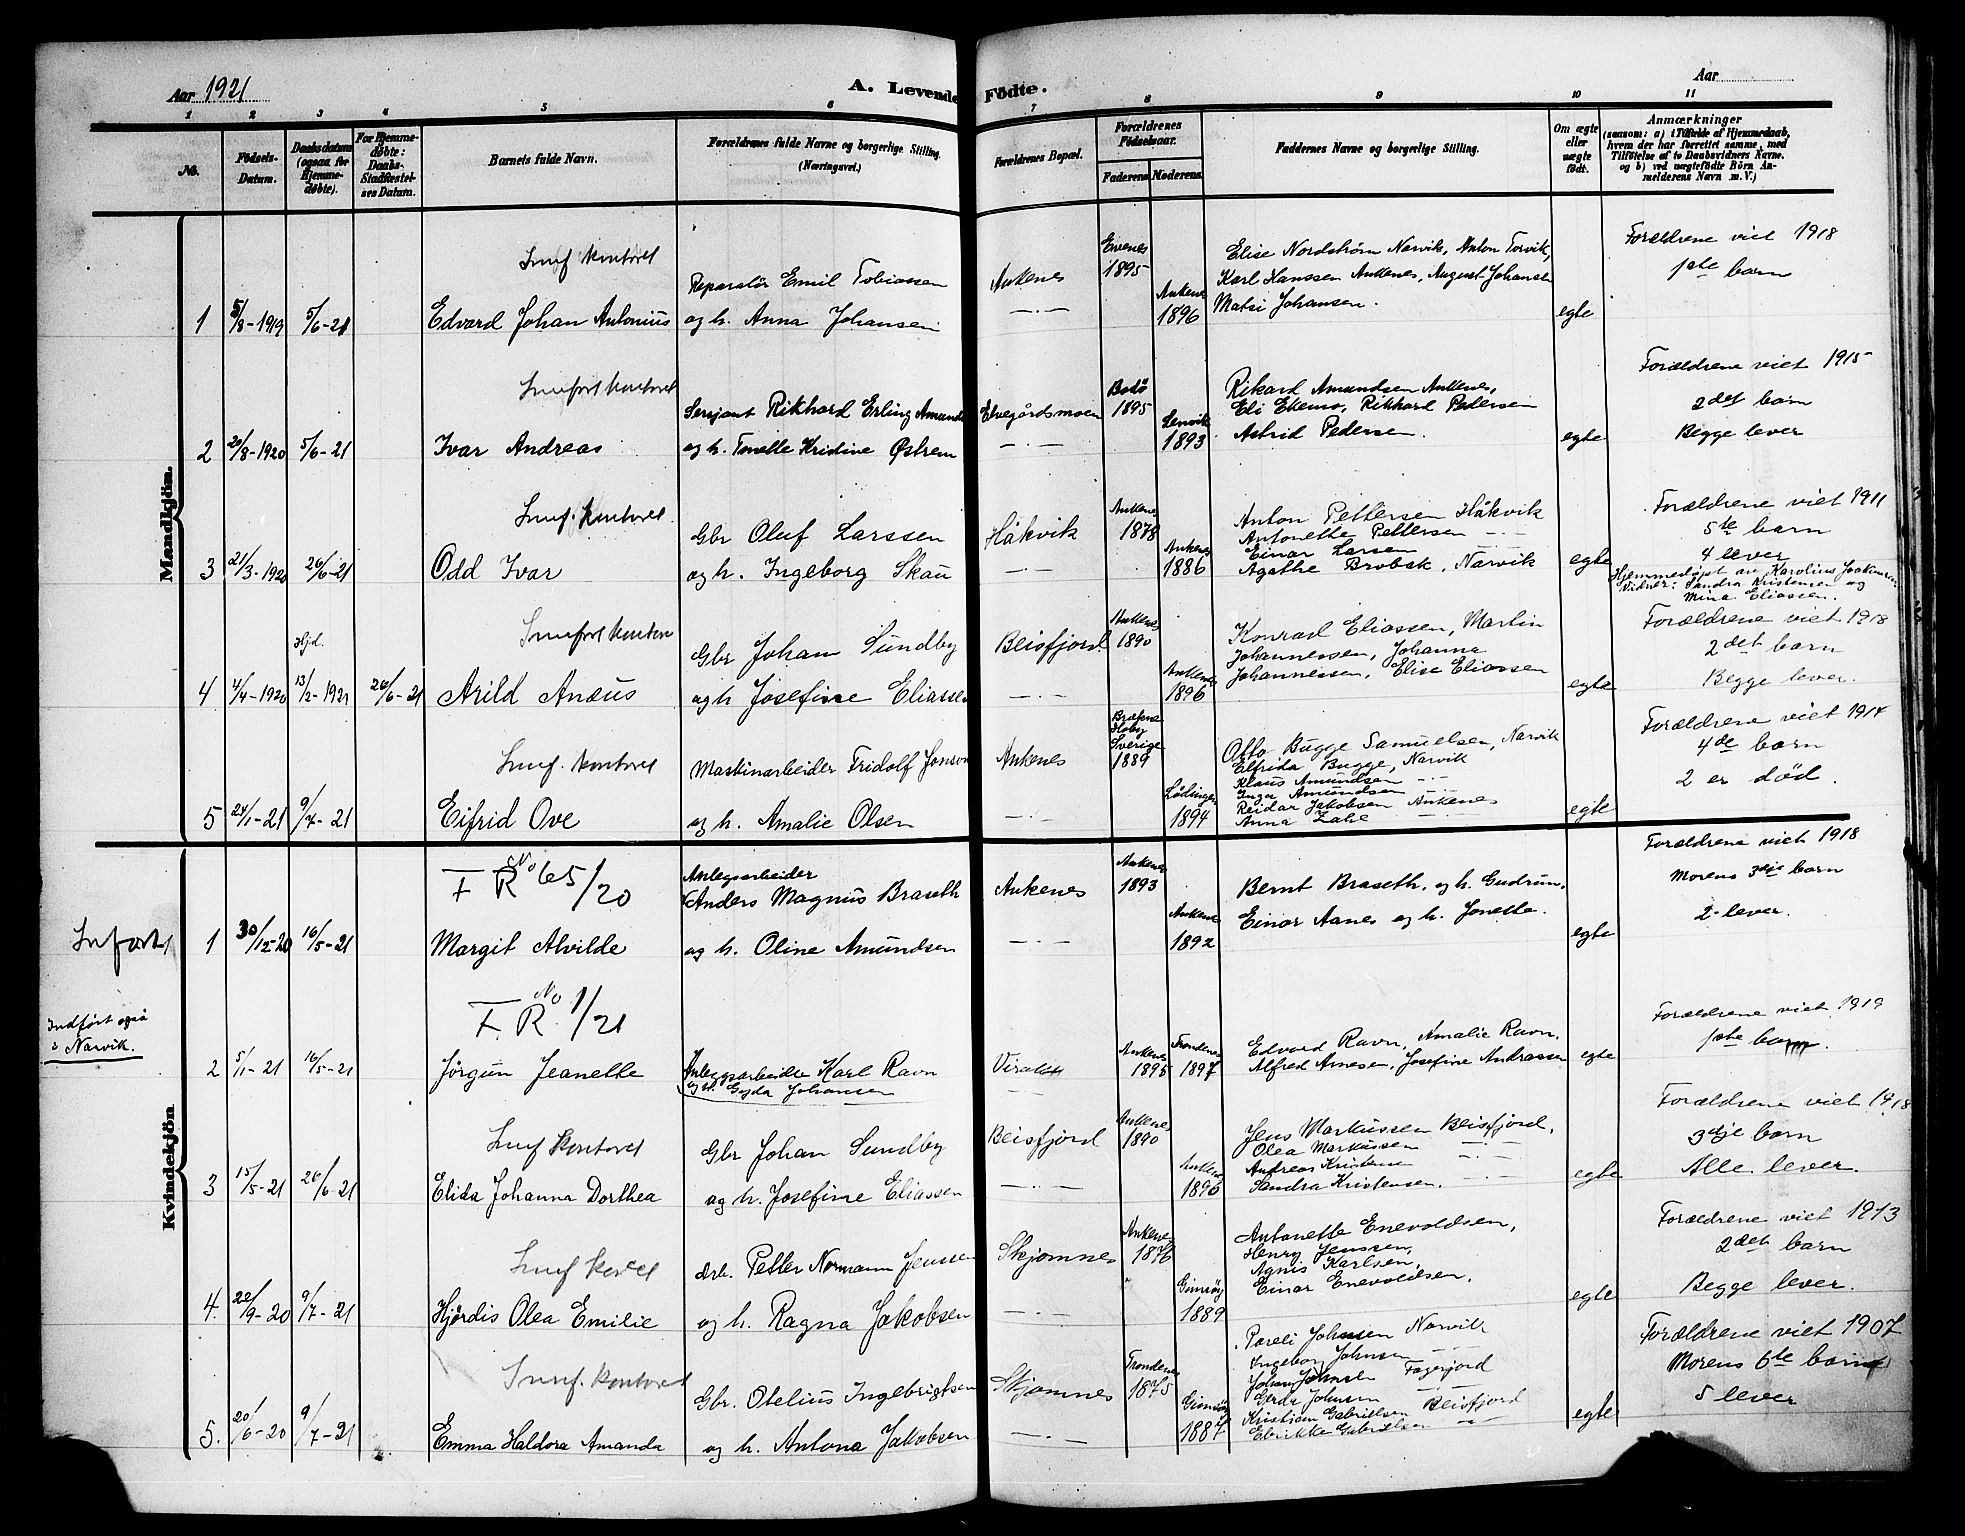 Aar 1921
A. Levende Fødte.
Aar
1 2 3 4 5 6 7 8 9 10 11
No.
Fødsels-Datum.
Daabsdatum (ogsaa for Hjemmedøbte).
For Hjemmedøbte: Daabs-Stadfæstelses Datum.
Barnets fulde Navn.
Forældrenes fulde Navne og borgerlige Stilling. (Næringsvei.)
Forældrenes Bopæl.
Forældrenes Fødselsaar.
Faderens. Moderens.
Faddernes Navne og borgerlige Stilling.
Om ægte eller uægte født.
Anmærkninger
(saasom: a) i Tilfælde af Hjemmedaab, hvem der har forrettet samme, med Tilføielse af to Daabsvidners Navne. og b) ved uægtefødte Børn Anmelderens Navn m. V.)
Mandkjøn.
1 5/8-1919 5/6-21 Edvard Johan Antonius
Reparatör Emil Tobiassen
og h. Anna Johansen
Ankenes
Evenes 1895
Ankenes 1896
Elise Nordstrøm Narvik, Anton Torvik,
Karl Hanssen Ankenes, August Johansen
Matsi Johansen.
egte
Forældrene viet 1918
1ste barn
2 20/8-1920 5/6-21 Ivar Andreas
Sersjant Rikhard Erling Amunds
og h. Tonette Kristine Østrem
Elvegårdsmoen
Bodö 1895
Lenvik 1893
Rikard Amundsen Ankenes,
Eli Ekemo, Rikhard Pedersen
Astrid Pedersen.
egte
Forældrene viet 1915
2det barn
Begge lever
3 21/3-1920 26/6-21 Odd Ivar
Gbr Oluf Larssen
og h. Ingeborg Skau
Håkvik
Ankenes 1878
Ankenes 1886
Anton Pettersen Håkvik
Antonette Pettersen
Einar Larsen
Agathe Brobak, Narvik
egte
Forældrene viet 1911
5te barn
4 lever
Hjemmedøpt av Karolius Joakimsen
Vidner: Sandra Kristensen og
Mina Eliassen.
4 4/4-1920 Hjd. 13/2-1921 26/6-21 Arild Anæus
Gbr Johan Sundby
og h Josefine Eliassen
Beisfjord
Ankenes 1890
Ankenes 1896
Konrad Eliassen, Martin
Johannessen, Johanna
Johannessen, Elise Eliassen
egte
Forældrene viet 1918
2det barn
Begge lever.
5 24/1-21 9/7-21 Eifrid Ove
Maskinarbeider Fridolf Jonson
og h. Amalie Olsen
Ankenes
Sverige 1889
Lødingen 1894
Otto Bugge Samuelsen, Narvik
Elfrida Bugge, Narvik
Klaus Amundsen
Inga Amundsen
Reidar Jakobsen Ankenes
Anna
egte
Forældrene viet 1914
4de barn
2 er död.
Kvindekjön
F R No 65/20
1 30/12-20 16/5-21 Margit Alvilde
Anlegsarbeider
Anders Magnus Braseth
og h. Oline Amundsen
Ankenes
Ankenes 1893
Ankenes 1892
Bernt Braseth, og h. Gudrun.
Einar Aanes og h. Jonette.
egte
Forældrene viet 1918
Morens 3dje barn
2 lever.
Indført også
i Narvik.
F. R. No 1/21
2 5/1-21 16/5-21 Jörgun Jeanette
Anleggsarbeider Karl Ravn
og h. Gyda Johansen
Ankenes 1895
Trondenes 1897
Edvard Ravn, Amalie Ravn,
Alfred Arnesen, Josefine Andrassen
egte
Forældrene viet 1919
1ste barn.
3 15/5-21 26/6-21 Elida Johanna Dorthea
Gbr Johan Sundby
og h. Josefine Eliassen
Beisfjord
Ankenes 1890
Ankenes 1896
Jens Markussen Beisfjord,
Olea Markussen
Andreas Kristensen
Sandra Kristensen.
egte
Forældrene viet 1918
3dje barn
Alle lever.
4. 22/9-20 9/7-21 Hjördis Olea Emilie
Arb. Petter Normann Jenssen
og h. Ragna Jakobsen
Skjomnes
Ankenes 1876
Gimsöy 1889
Antonette Enevoldsen,
Henry Jenssen,
Agnis Karlsen,
Einar Enevoldsen.
egte
Forældrene viet 1913
2det barn
Begge lever.
5. 20/6-20 9/7-21 Emma Haldora Amanda
Gbr. Otelius Ingebrigtsen
og h. Antona Jakobsen
Skjomnes
Trondenes 1875
Gimsöy 1887
Pareli Johnsen Narvik
Ingeborg Johnsen
Johan Johnsen Fagerjord
Gerda Johnsen
Kristian Gabrielsen Beisfjord
Elrikke Gabrielsen
egte
Forældrene viet 1907
Morens 6te barn
5 lever